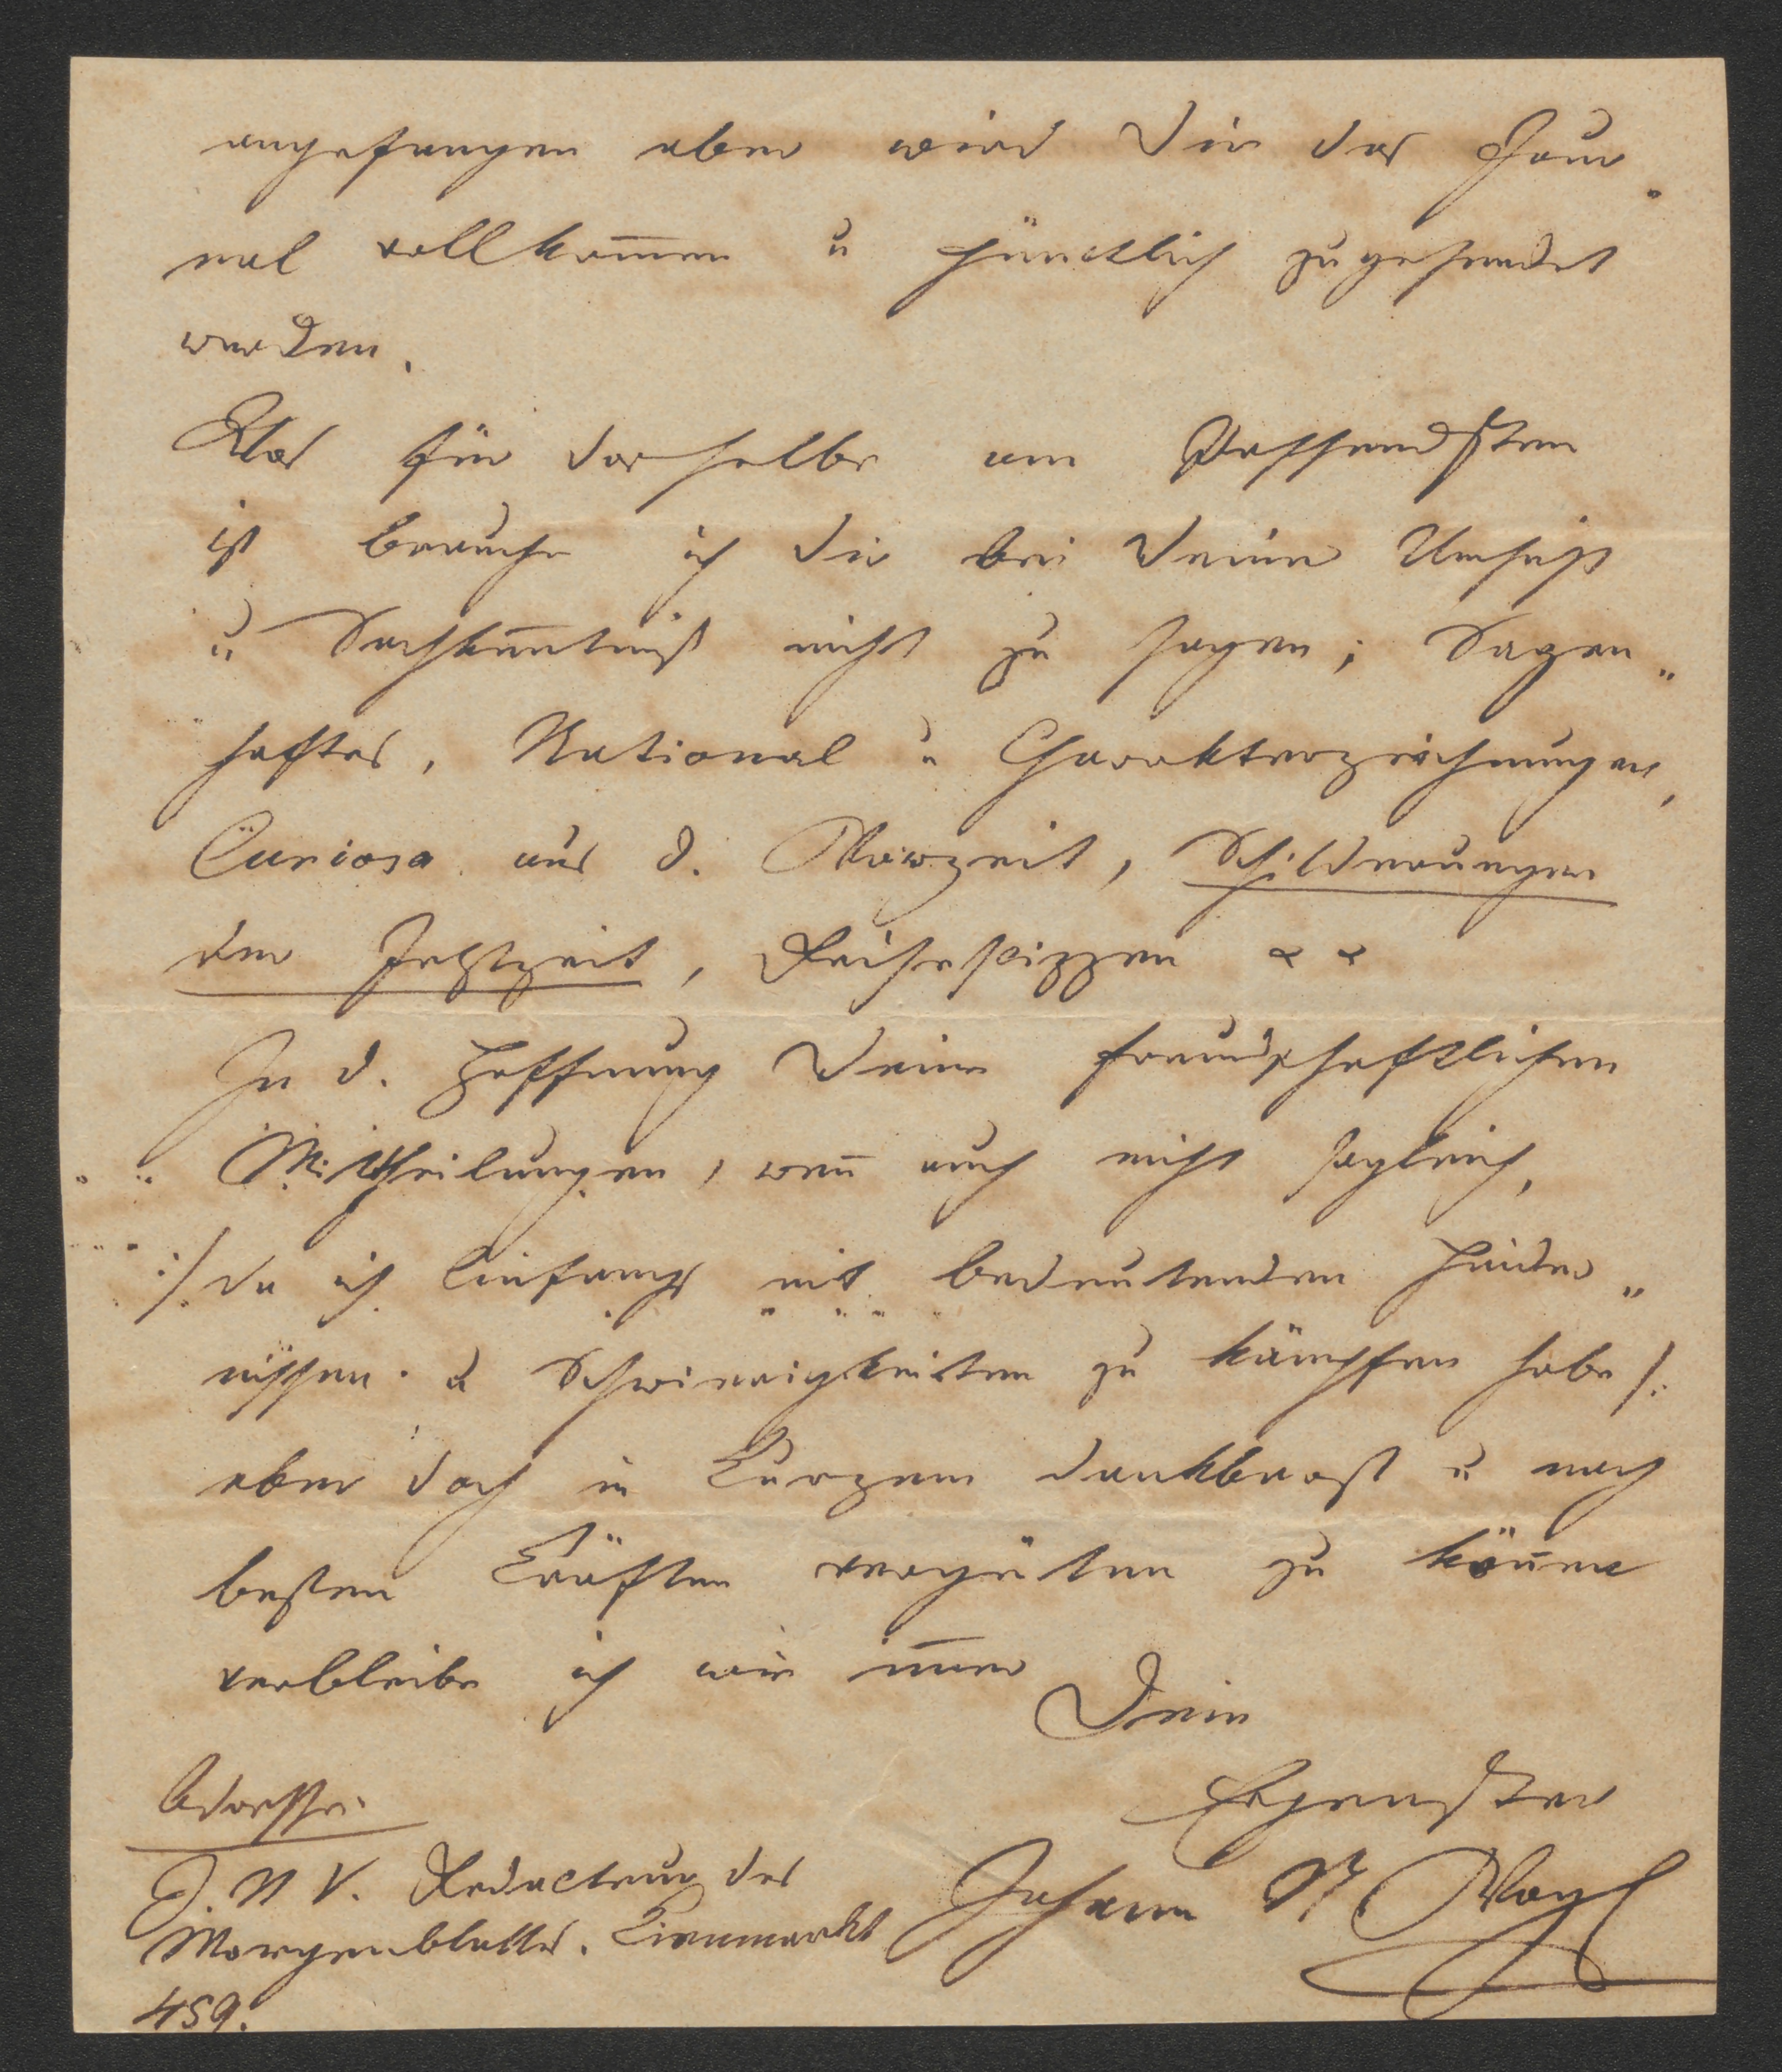 angefangen aber wird Dir das Jour-
nal vollkom̅en u pünctlich zugesendet
werden.
Was für dasselbe am Passendsten
ist brauche ich Dir bei Deiner Umsicht
u Sachken̅tniß nicht zu sagen; Sagen„
haftes, National u Charakterzeichnungen,
Curiosa aus d. Vorzeit, Schilderungen
der Jetztzeit, Reiseskizzen
In d. Hoffnung Deine freundschaftlichen
Mittheilungen, wen̅ auch nicht sogleich,
:/ da ich Anfangs mit bedeutenden Hinder„
nissen u Schwierigkeiten zu kämpfen habe /:
aber doch in Kurzem dankbarst u nach
besten Kräften vergüten zu kön̅en
verbleibe ich wie im̅er
Dein
Ergenster
Johann N Vogl
Adresse:
J. N V. Redacteur des
Morgenblattes. Kienmarkt
459.